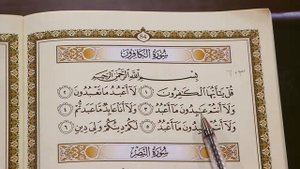 ٦٠٣
سُورَةُ الكَافِرُونَ
بِسْمِ اللَّهِ الرَّحْمَٰنِ الرَّحِيمِ
قُلْ يَٰٓأَيُّهَا ٱلْكَٰفِرُونَ ١ لَآ أَعْبُدُ مَا تَعْبُدُونَ ٢
وَلَآ أَنتُمْ عَٰبِدُونَ مَآ أَعْبُدُ ٣ وَلَآ أَنَا۠ عَابِدٌ مَّا عَبَدتُّمْ ٤
وَلَآ أَنتُمْ عَٰبِدُونَ مَآ أَعْبُدُ ٥ لَكُمْ دِينُكُمْ وَلِىَ دِينِ ٦
سُورَةُ النَّصْرِ